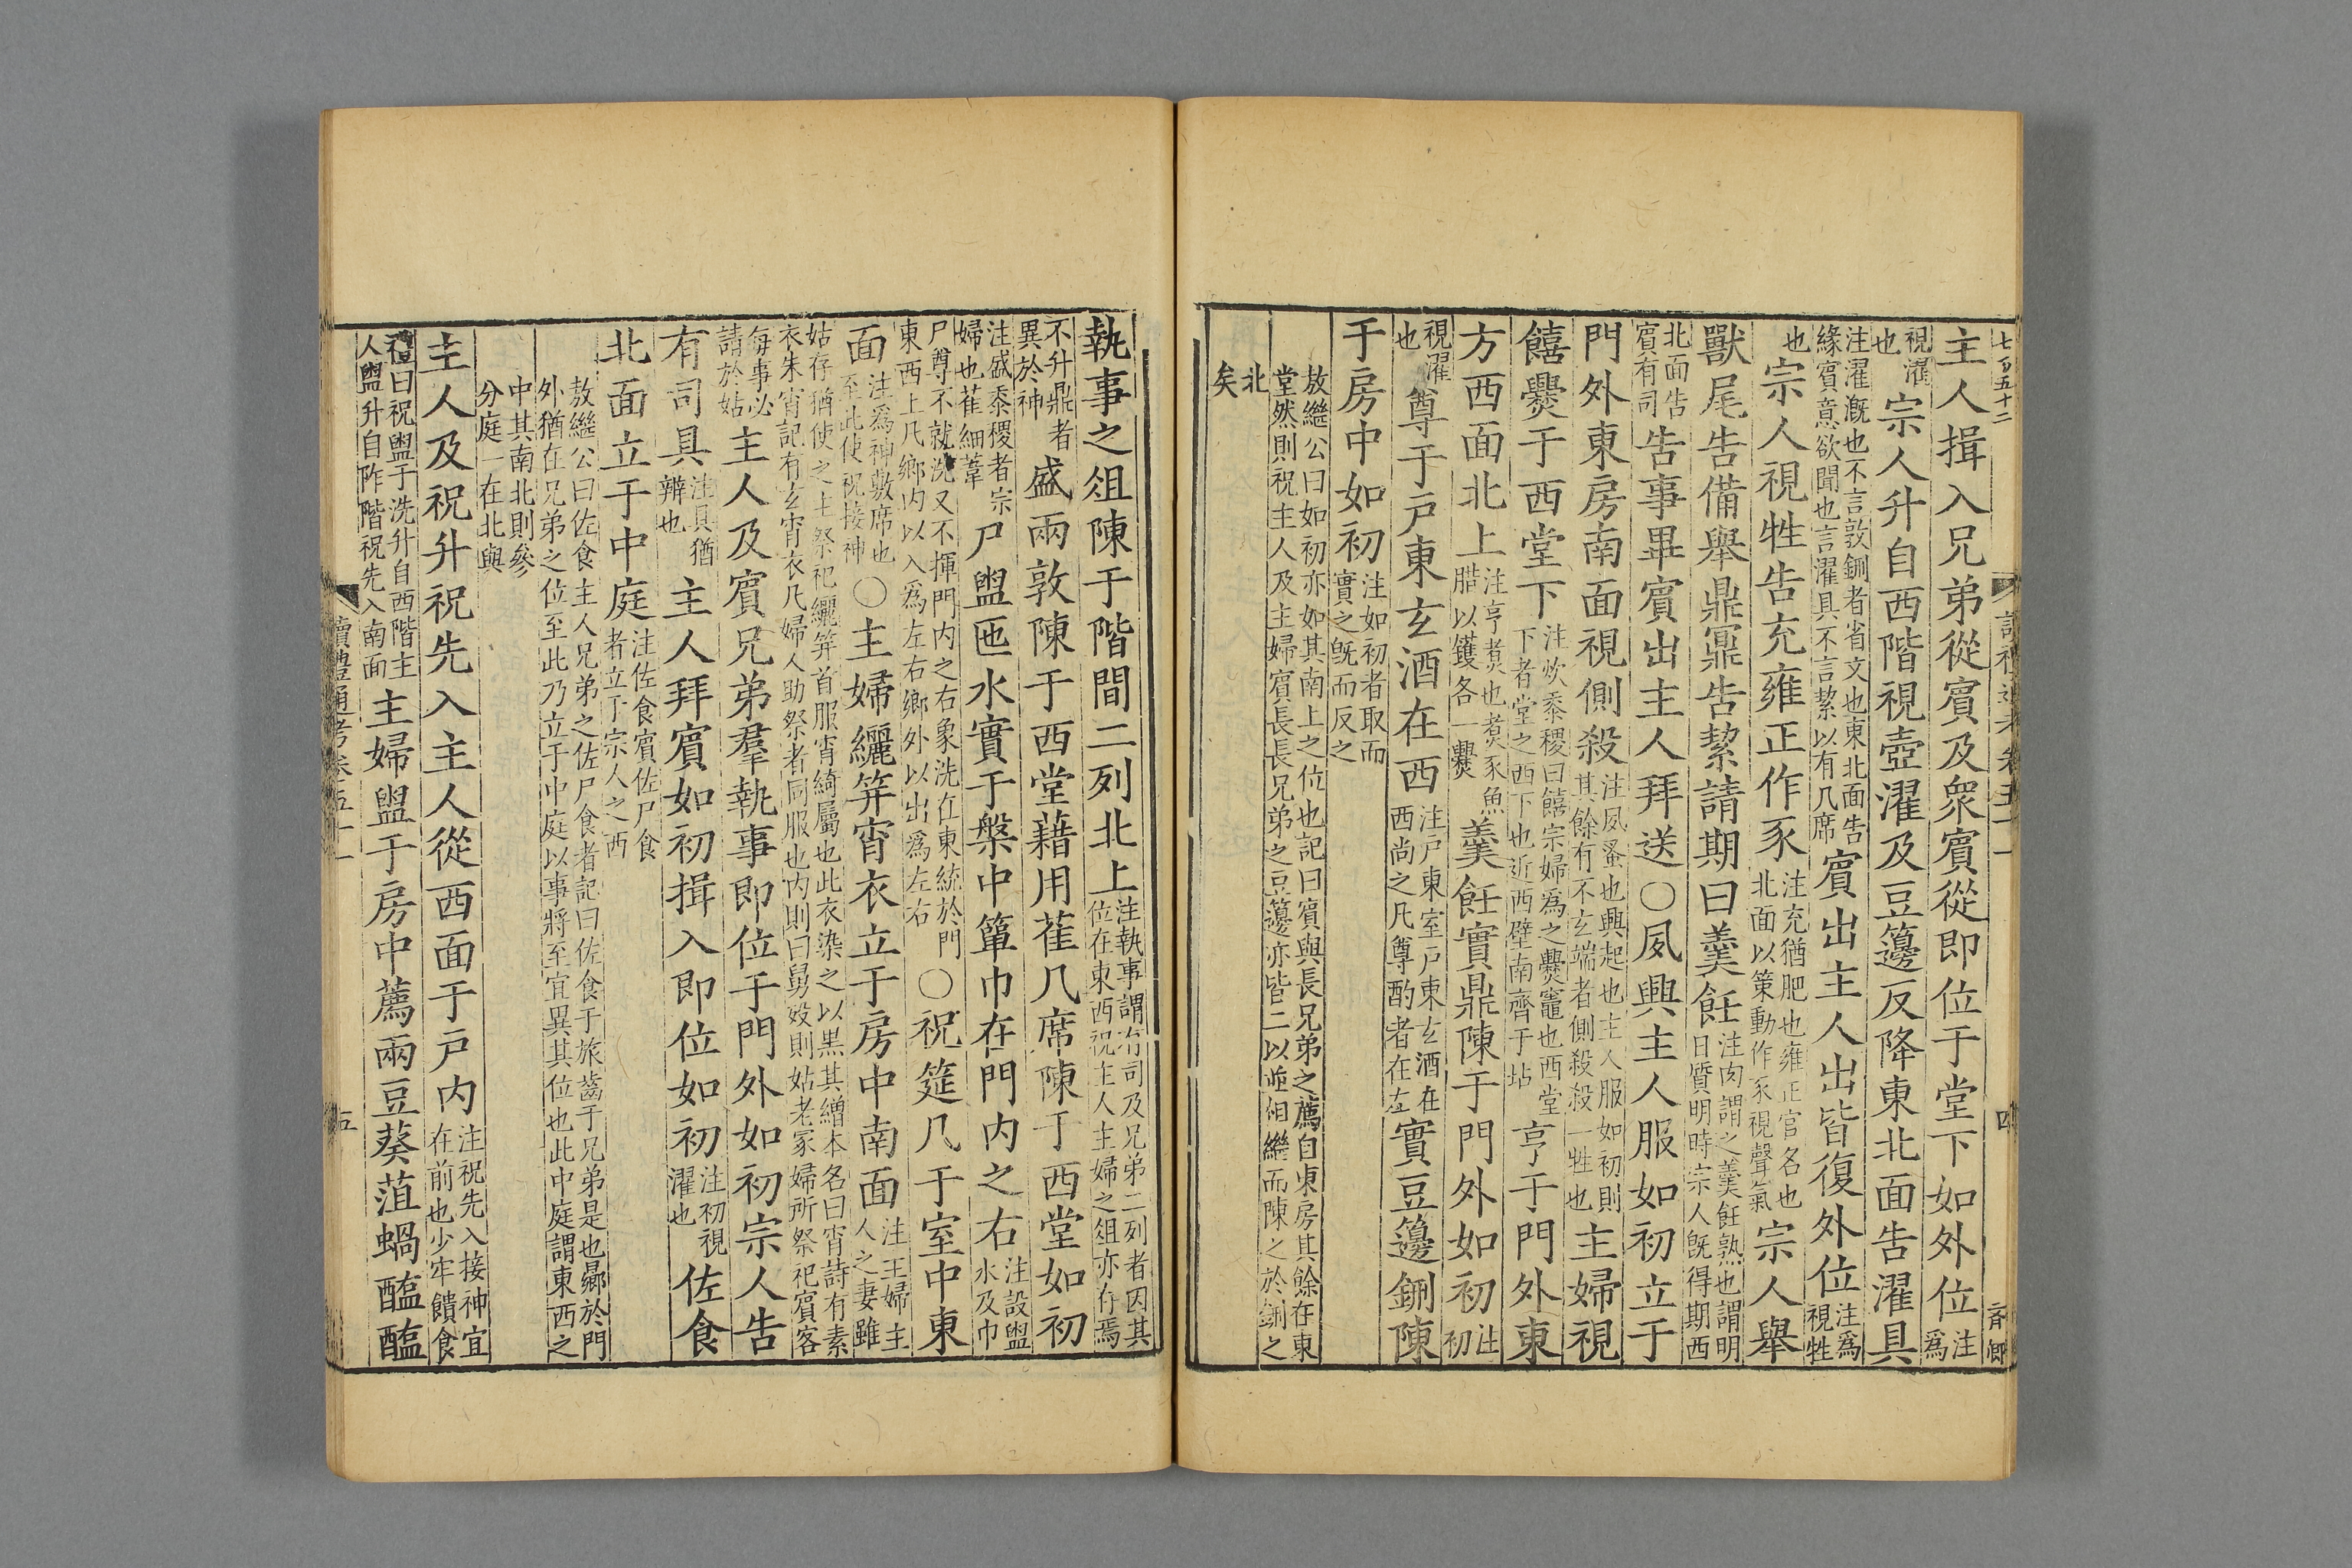 七百五十二
讀禮通考卷五十一
四
主人揖入兄弟從賓及衆賓從即位于堂下如外位注爲
視濯也宗人升自西階視壺濯及豆籩反降東北面告濯具
注濯溉也不言敦鉶者省文也東北面告緣賓意欲聞也言濯具不言絜以有几席賓出主人出皆復外位注爲視牲
也宗人視牲告充雍正作豕注充猶肥也雍正官名也北面以策動作豕視聲氣宗人舉
獸尾告備舉鼎鼏告絜請期曰羹飪注肉謂之羹飪熟也謂明日質明時宗人既得期西
北面告賓有司告事畢賓出主人拜送○夙興主人服如初立于
門外東房南面視側殺注夙蚤也興起也主人服如初則其餘有不玄端者側殺殺一牲也主婦視
饎爨于西堂下注炊黍稷曰饎宗婦爲之爨竈也西堂下者堂之西下也近西壁南齊于坫亨于門外東
方西面北上注亨煮也煮豕魚腊以鑊各一爨羹飪實鼎陳于門外如初注初
視濯也尊于戶東玄酒在西注戶東室戶東玄酒在西尚之凡尊酌者在左實豆籩鉶陳
于房中如初注如初者取而實之既而反之
敖繼公曰如初亦如其南上之位也記曰賓與長兄弟之薦自東房其餘在東堂然則祝主人及主婦賓長長兄弟之豆籩亦皆二以並相繼而陳之於鉶之
北矣
執事之俎陳于階間二列北上注執事謂有司及兄弟二列者因其位在東西祝主人主婦之俎亦存焉
不升鼎者異於神盛兩敦陳于西堂藉用萑几席陳于西堂如初
注盛黍稷者宗婦也萑細葦尸盥匜水實于槃中簞巾在門內之右注設盥水及巾
尸尊不就洗又不揮門內之右象洗在東統於門東西上凡鄉內以入爲左右鄉外以出爲左右○祝筵几于室中東
面注爲神敷席也至此使祝接神○主婦纚笄宵衣立于房中南面注主婦主人之妻雖
姑存猶使之主祭祀纚笄首服宵綺屬也此衣染之以黑其繒本名曰宵詩有素衣朱宵記有玄宵衣凡婦人助祭者同服也內則曰舅歿則姑老冢婦所祭祀賓客
每事必請於姑主人及賓兄弟羣執事即位于門外如初宗人告
有司具注具猶辨也主人拜賓如初揖入即位如初注初視濯也佐食
北面立于中庭注佐食賓佐尸食者立于宗人之西
敖繼公曰佐食主人兄弟之佐尸食者記曰佐食于旅齒于兄弟是也曏於門外猶在兄弟之位至此乃立于中庭以事將至宜異其位也此中庭謂東西之
中其南北則參分庭一在北與
主人及祝升祝先入主人從西面于戶內注祝先入接神宜在前也少牢饋食
禮曰祝盥于洗升自西階主人盥升自阼階祝先入南面主婦盥于房中薦兩豆葵菹蝸醢醢
讀禮通考卷五十一
五